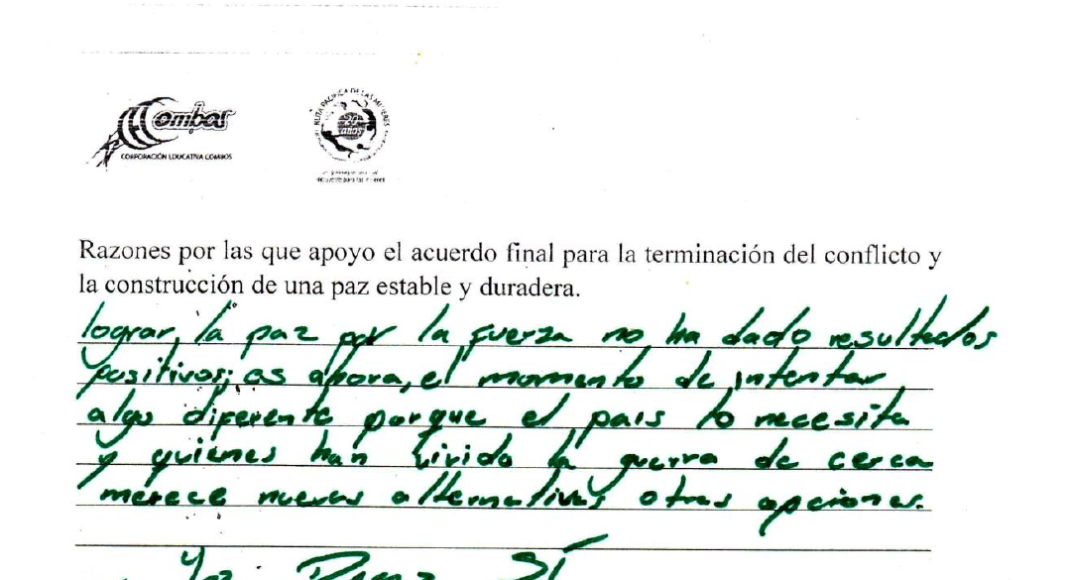 Combos
CORPORACIÓN EDUCATIVA COMBOS
RUTA PACÍFICA DE LAS MUJERES
20
años
Razones por las que apoyo el acuerdo final para la terminación del conflicto y
la construcción de una paz estable y duradera.
lograr, la paz por la fuerza no ha dado resultados
positivos; es ahora, el momento de intentar
algo diferente porque el país lo necesita
y quienes han vivido la guerra de cerca
merece nuevas alternativas otras opciones.
Sí